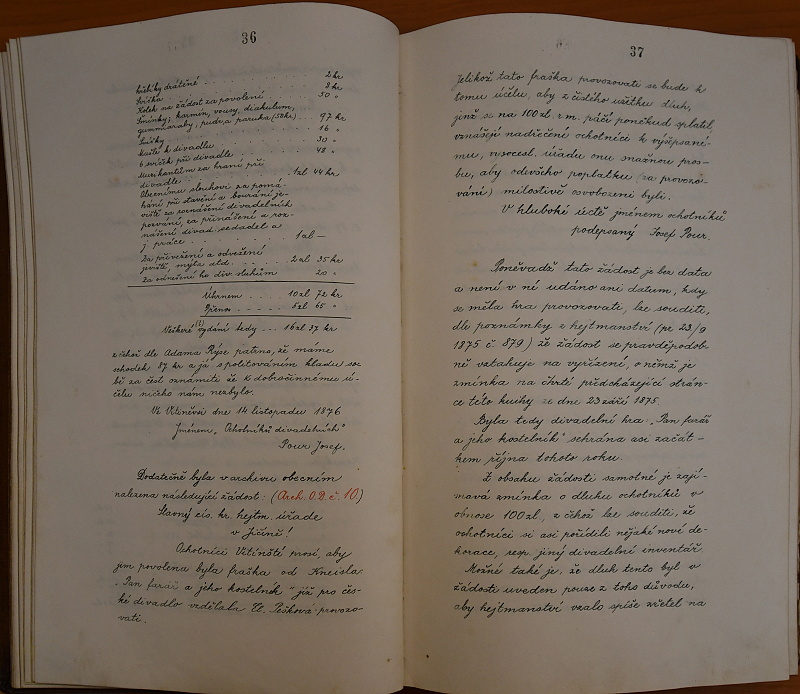 36
hřebíky drátěné . . . 2 kr
Svíčka . . . 3 kr
Kolek na žádost za povolení . . . 50 "
Šminky; karmín, vousy, diakulum,
gummiaraby, pudr, a paruka (58kr) . . . 97 kr
Svíčky . . . 16 "
Mouše k divadlu . . . 30 "
6 svíček při divadle . . . 48 "
Muzikantům za hraní při
divadle . . . 1 zl 44 kr
Obecnímu sluhovi za pomá-
hání při stavení a bourání je-
viště za roznášení divadelních
pozvání, za přinášení a roz-
nášení divad. sedadel a
j. práce . . . 1 zl —
Za přivežení a odvežení
jeviště, mýta atd. . . . 2 zl 35 kr
Za odnešení ho div. sluhům 20 "
Úhrnem . . . 10 zl 72 kr
Přenos . . . 5 zl 65 "
Veškeré (!) vydání tedy . . . 16 zl 37 kr
z čehož dle Adama Rýse patrno, že máme
schodek 87 kr a já s politováním kladu so-
bě za čest oznámiti že k dobročinnému ú-
čelu ničeho nám nezbylo.
Ve Vtiněvsi dne 14 listopadu 1876
Jménem „Ochotníků divadelních"
Pour Josef.
Dodatečně byla v archivu obecním
nalezena následující žádost: (Arch. O.D. č. 10)
Slavný cís. kr. hejtm. úřade
v Jičíně!
Ochotníci prosí, aby
jim povolena byla fraška od Kneisla:
„Pan farář a jeho kostelník" již pro čes-
ké divadlo vzdělala El. Pešková provozo-
vati.
37
Jelikož tato fraška provozovati se bude k
tomu účelu, aby z čistého užitku dluh,
jenž se na 100 zl. r. m. páčí poněkud splatil
vznášejí nadřečení ochotníci k výšepsané-
mu, vysocesl. úřadu onu snažnou pros-
bu, aby od všeho poplatku (za provozo-
vání) milostivě osvobozeni byli.
V hluboké úctě jménem ochotníků
podepsaný Josef Pour.
Poněvadž tato žádost je bez data
a není v ní udáno ani datum, kdy
se měla hra provozovati, lze souditi,
dle poznámky z hejtmanství (pr 23/9
1875 č. 879) že žádost se pravděpodob-
ně vztahuje na vyřízení, o němž je
zmínka na čtvrté předcházející strán-
ce této knihy ze dne 23 září 1875.
Byla tedy divadelní hra: „Pan farář
a jeho kostelník" sehrána asi začát-
kem října tohoto roku.
Z obsahu žádosti samotné je zají-
mavá zmínka o dluhu ochotníků v
obnose 100 zl., z čehož lze souditi, že
ochotníci si asi pořídili nějaké nové de-
korace, resp. jiný divadelní inventář.
Možné také je, že dluh tento byl v
žádosti uveden pouze z toho důvodu,
aby hejtmanství vzalo spíše zřetel na